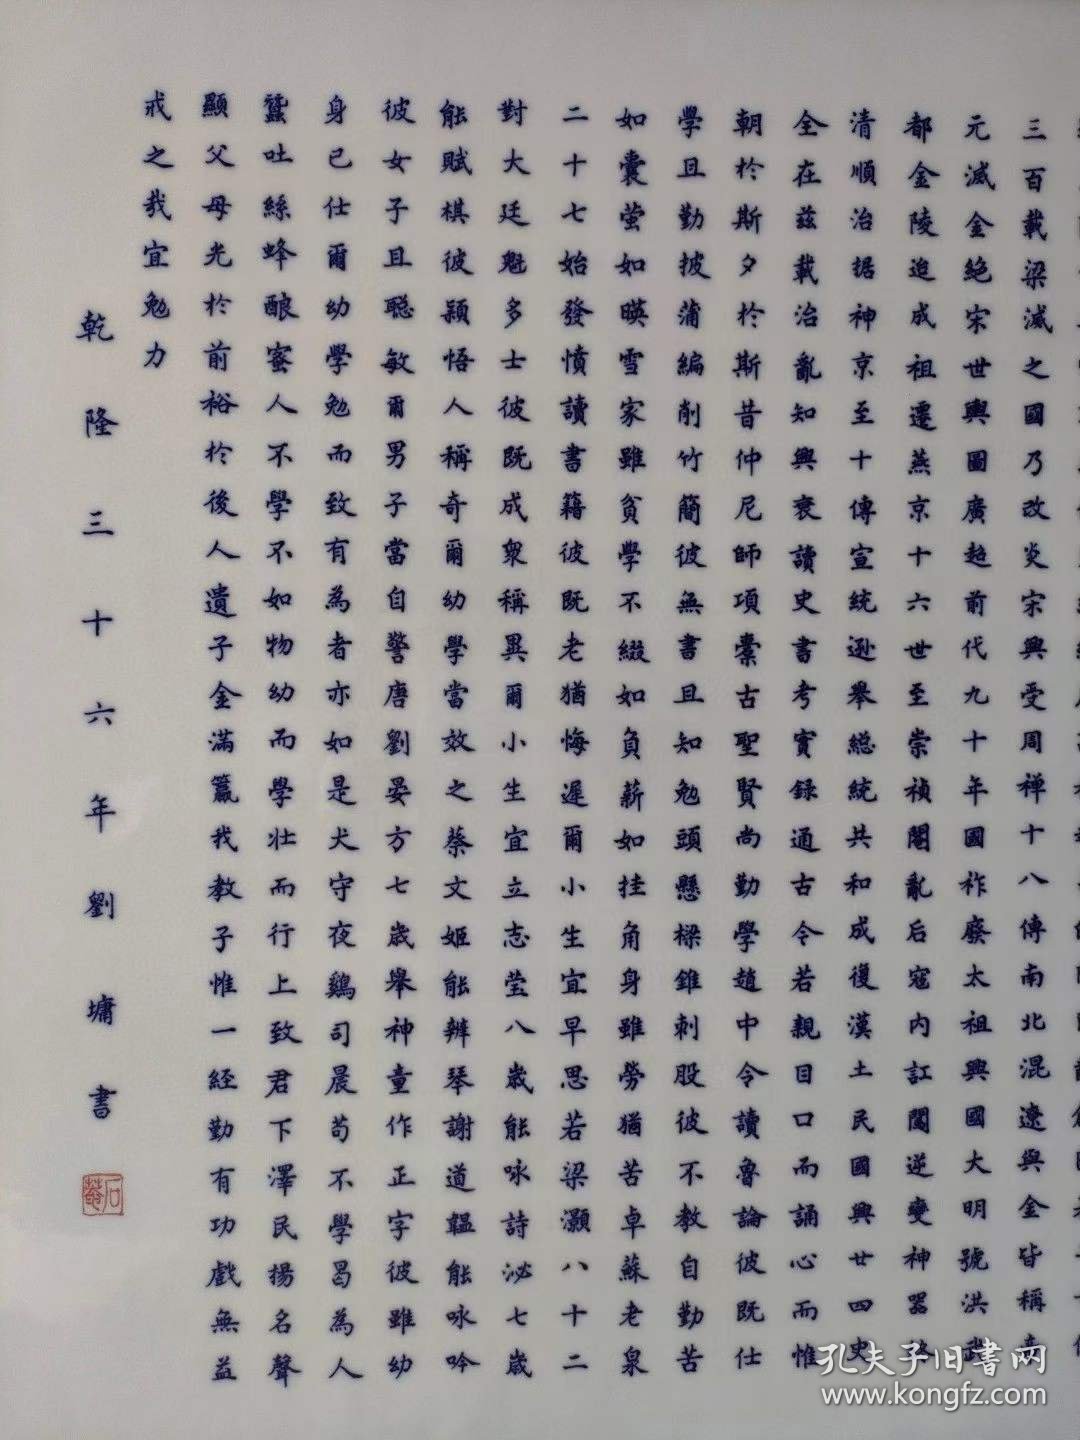 三百載梁滅之國乃改炎宋興受周禅十八傳南北混遼與金皆稱帝
元滅金絕宋世輿圖廣超前代九十年國祚廢太祖興國大明號洪武
都金陵迨成祖遷燕京十六世至崇禎閹亂后寇內訌闖逆變神器
清順治据神京至十傳宣統遜舉総統共和成復漢土民國興廿四史
全在兹載治亂知興衰讀史書考實錄通古令若親目口而誦心而惟
朝於斯夕於斯昔仲尼師項橐古聖賢尚勤學趙中令讀魯論彼既仕
學且勤披蒲編削竹簡彼無書且知勉頭懸樑錐刺股彼不教自勤苦
如囊萤如暎雪家雖貧學不綴如負薪如挂角身雖勞猶苦卓蘇老泉
二十七始發憤讀書籍彼既老猶悔遲爾小生宜早思若梁灝八十二
對大廷魁多士彼既成眾稱異爾小生宜立志莹八歲能咏詩泌七歲
能賦棋彼穎悟人稱奇爾幼學當效之蔡文姬能辨琴謝道韞能咏吟
彼女子且聰敏爾男子當自警唐劉晏方七歲舉神童作正字彼雖幼
身已仕爾幼學勉而致有為者亦如是犬守夜鷄司晨苟不學曷為人
蠶吐絲蜂酿蜜人不學不如物幼而學壯而行上致君下澤民揚名聲
顯父母光於前裕於後人遺子金滿籝我教子惟一經勤有功戲無益
戒之哉宜勉力
乾隆三十六年劉墉書
石菴
孔夫子旧書网
www.kongfz.com